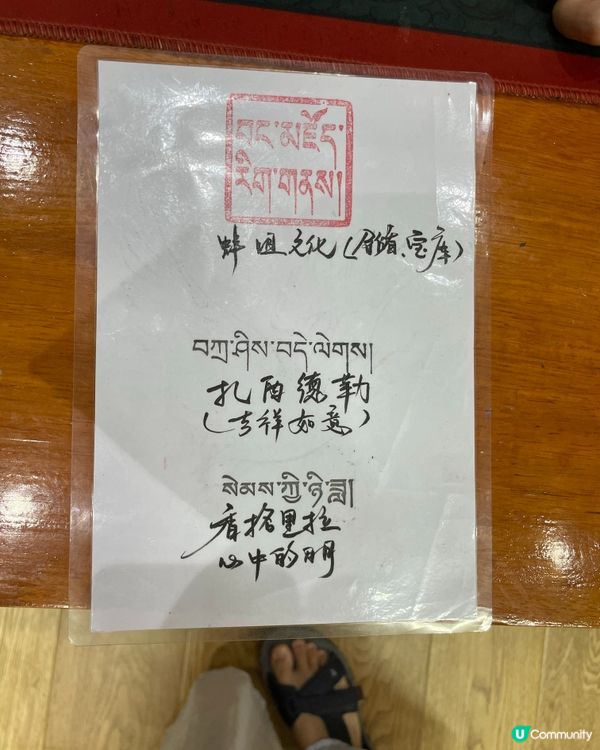 བང་མཛོད་
རིག་གནས།
蚌 文化(储备、宝库)
བཀྲ་ཤིས་བདེ་ལེགས།
扎西德勒
(吉祥如意)
སེམས་ཀྱི་ཉི་ཟླ།
香格里拉
心中的日月
U Community